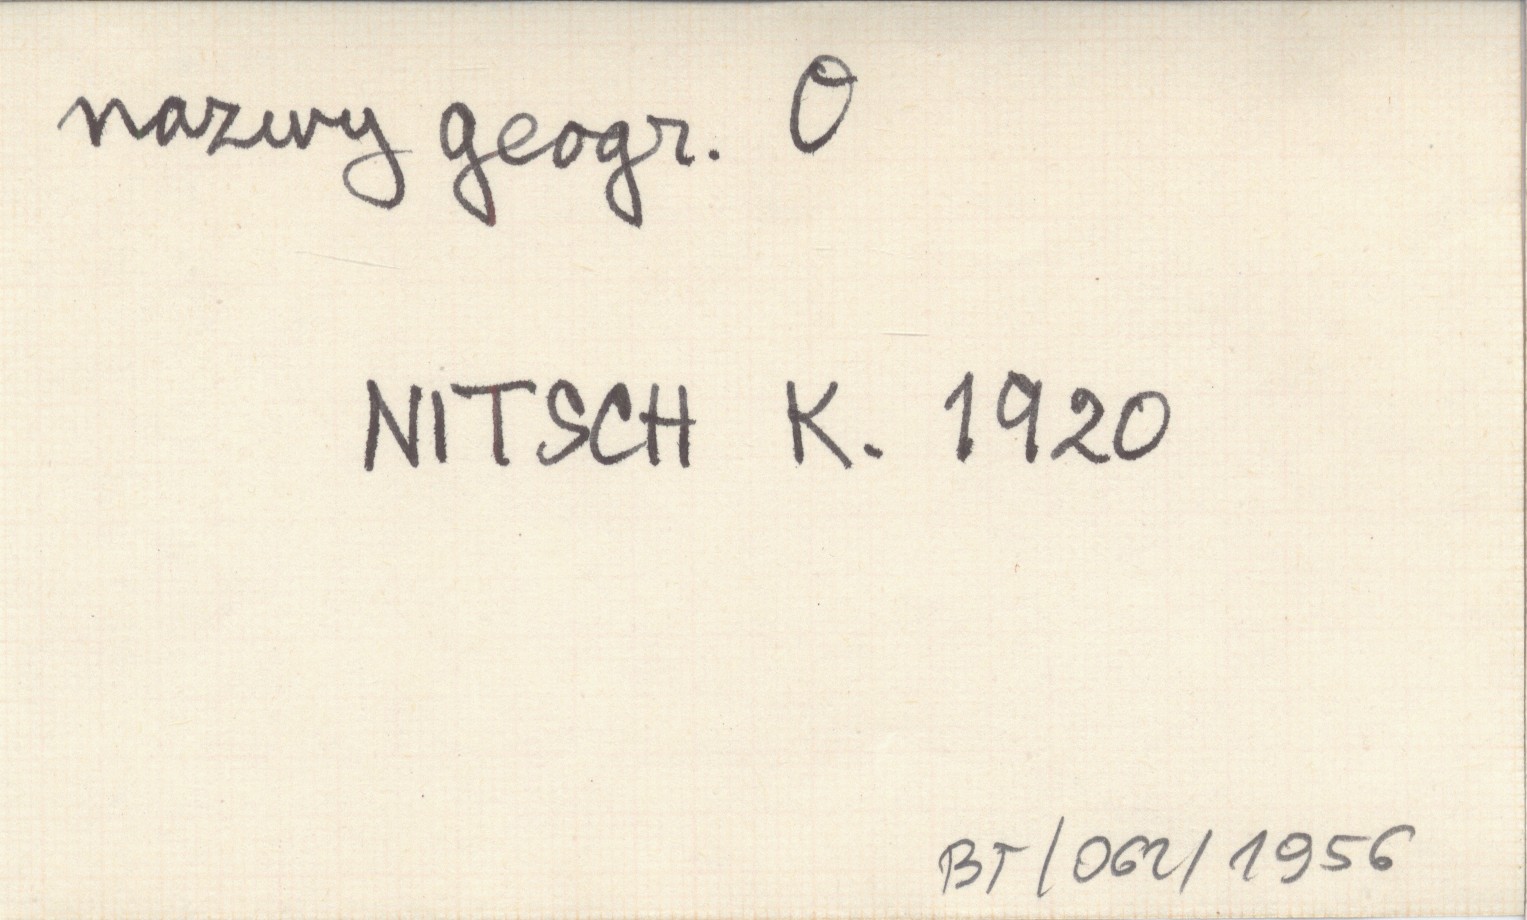 nazwy geogr. O
NITSCH K. 1920
BT/062/1956